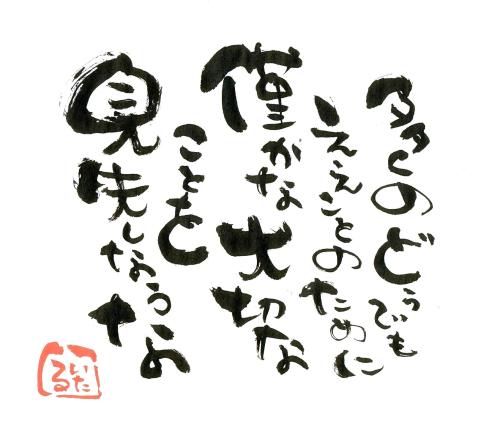 多くのどうでも
ええことのために
僅かな大切な
ことを
見失しなうなよ
いたる